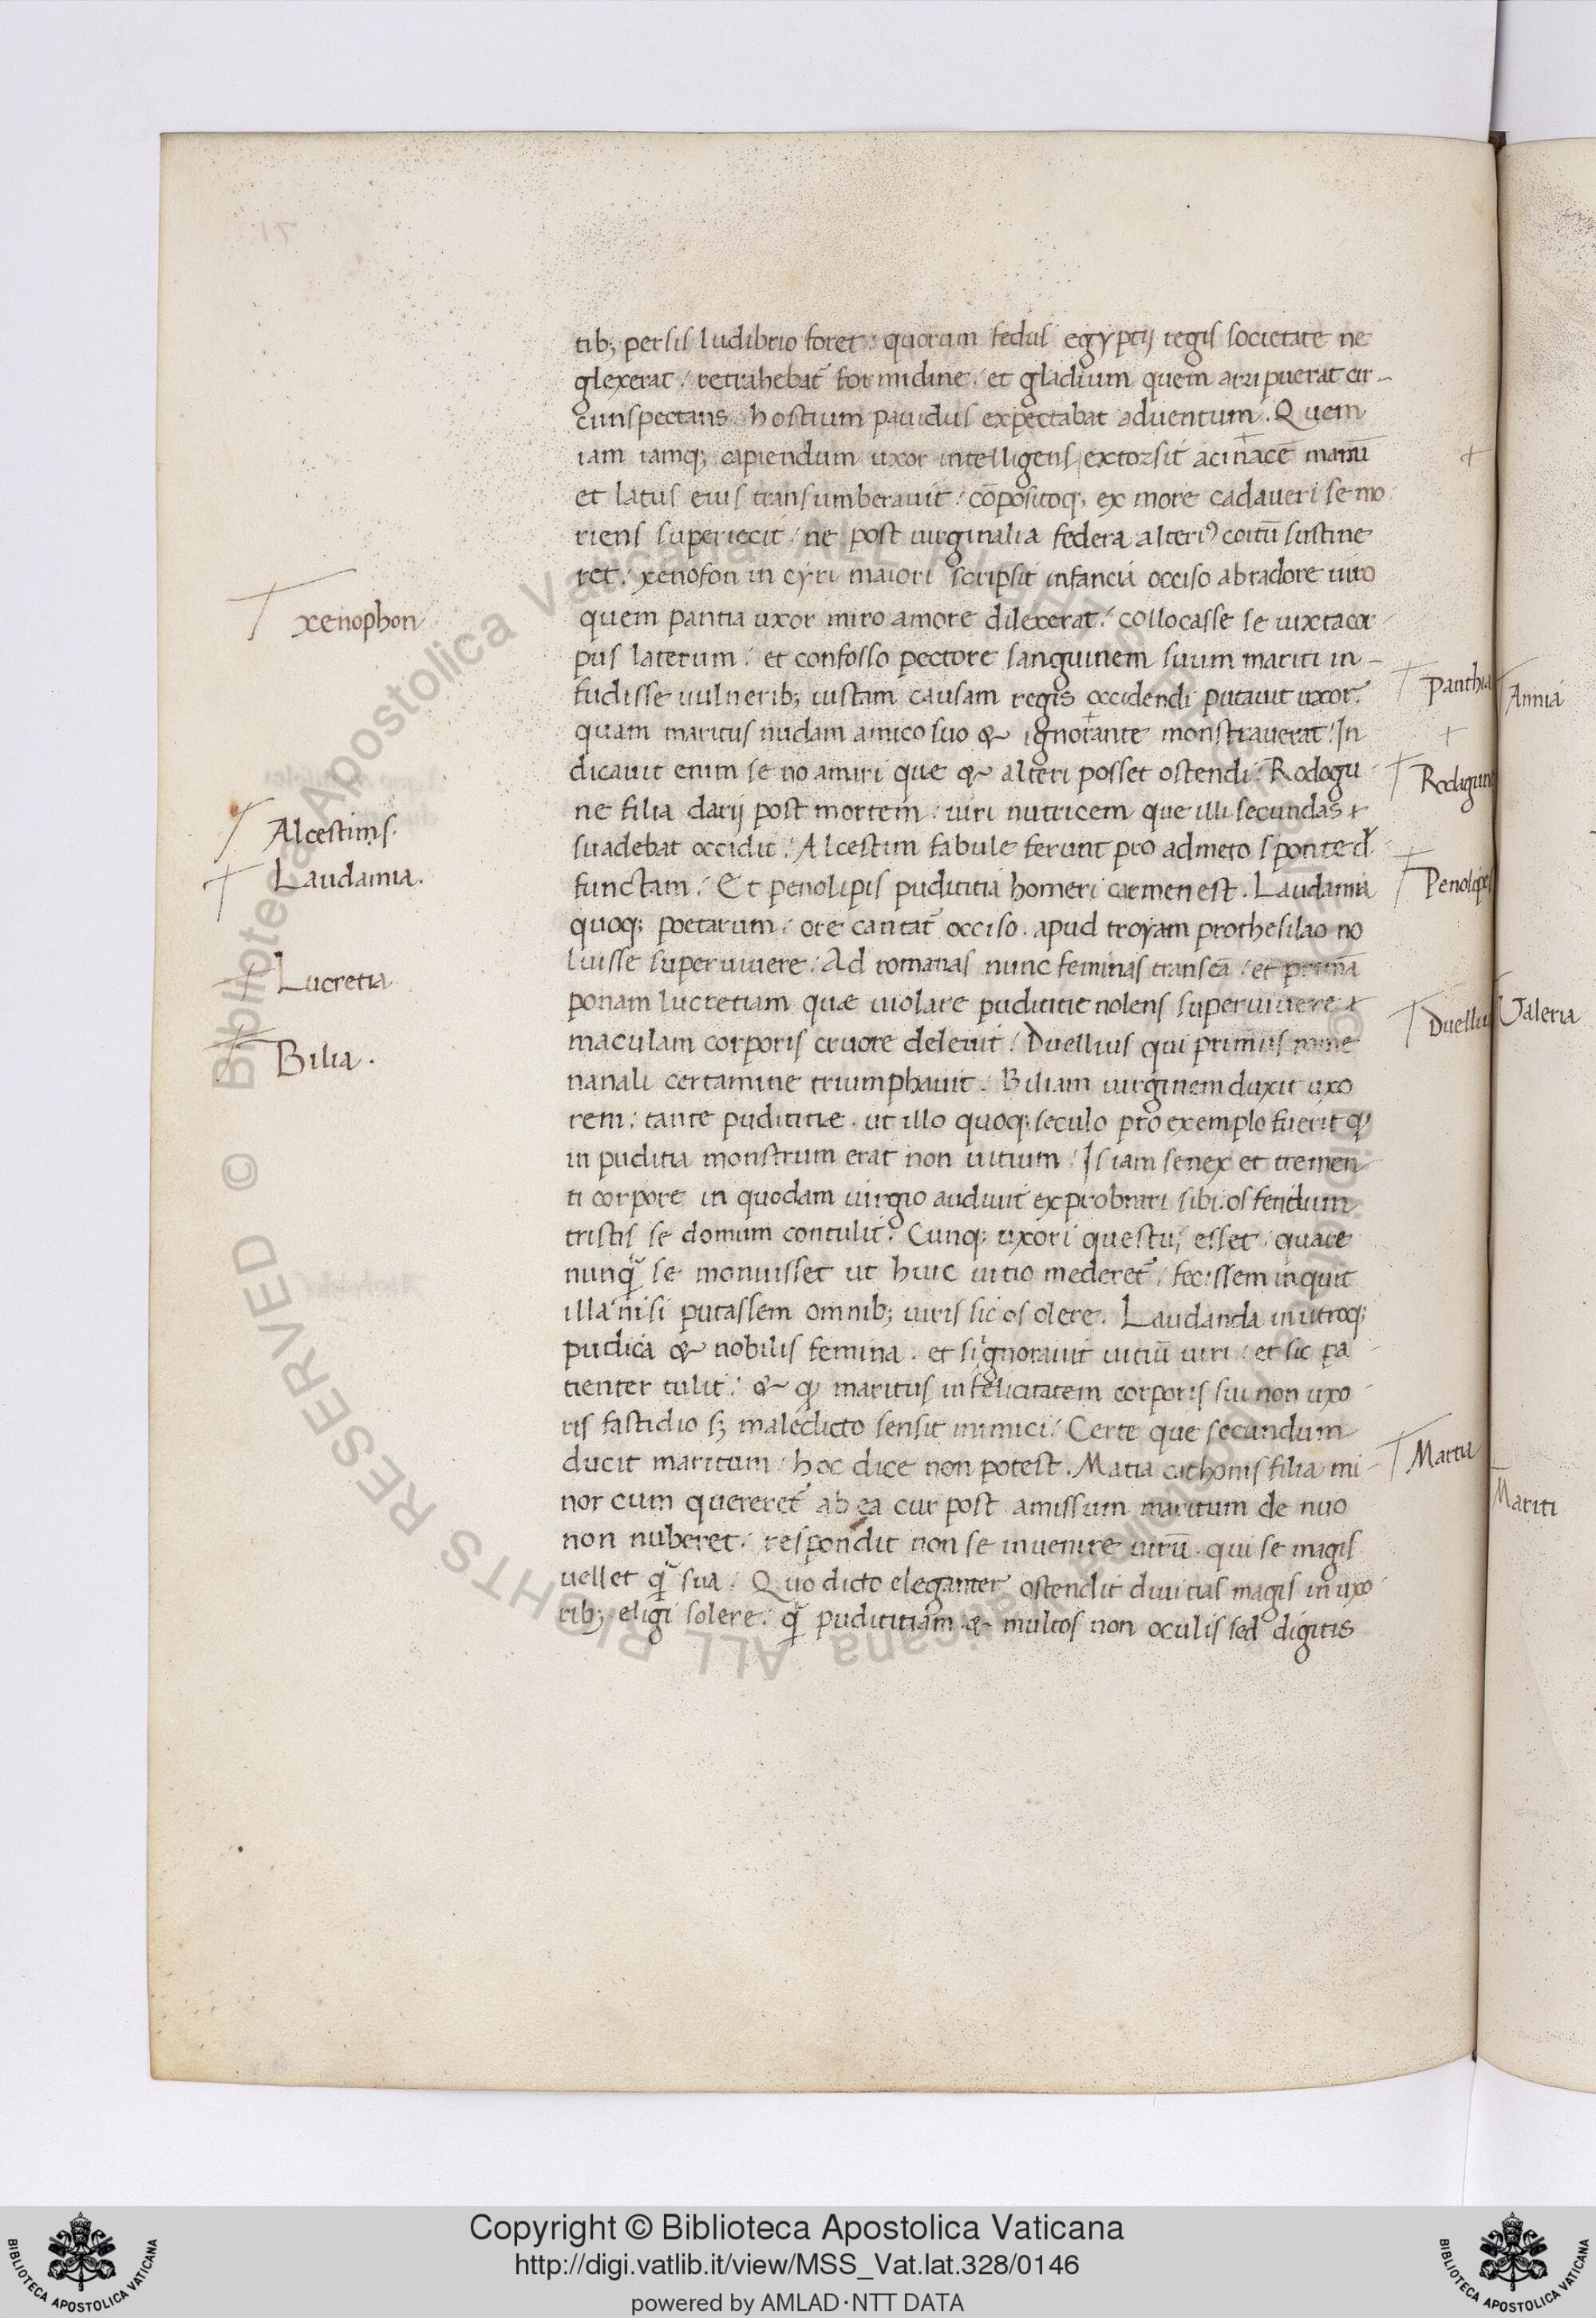 tib; persis ludibrio foret: quorum fedus egyptij regis societate ne
glexerat: retrahebat̃ formidine. et gladium quem arripuerat cir-
cunspectans. hostium pauidus expectabat aduentum. Quem
iam iamq; capiendum uxor intelligens extorsit acinacē manū
et latus eius transumberauit: cōpositoq; ex more cadaueri se mo
riens superiecit: ne post uirginalia federa alteri⁹ coitū sustine
ret. xenofon in cyri maiori scripsit infancia occiso abradore uiro
quem pantia uxor miro amore dilexerat: collocasse se iuxta cor
pus laterum: et confosso pectore sanguinem suum mariti in-
fudisse uulnerib; iustam causam regis occidendi putauit uxor
quam maritus nudam amico suo & ignorante monstrauerat. In
dicauit enim se no amari que & alteri posset ostendi. Rodogu
ne filia darij post mortem: uiri nutricem que illi secundas +
suadebat occidit. Alcestim fabule ferunt pro admeto sponte d
functam. Et penolipis pudititia homeri carmen est. Laudamia
quoq; poetarum: ore cantat̃ occiso. apud troyam prothesilao no
luisse superuiuere. Ad romanas nunc feminas transeā: et primā
ponam lucretiam quæ uiolate pudititie nolens superuiuere +
maculam corporis cruore deleuit. Duellius qui primus
nanali certamine triumphauit. Biliam uirginem duxit uxo
rem: tante pudititiæ. ut illo quoq; seculo pro exemplo fuerit qͦ
in puditia monstrum erat non uitium. Is iam senex et tremen
ti corpore in quodam uirgio audiuit exprobrari sibi. os fetidum
tristis se domum contulit. Cunq; uxori questus esset. quare
nunq̃ se monuisset ut huic uitio mederet̃: fecissem inquit
illa nisi putassem omnib; uiris sic os olere. Laudanda in utroq;
pudica & nobilis femina. et si ignorauit uitiū uiri: et sic pa
tienter tulit: & qͦ maritus infelicitatem corporis sui non uxo
ris fastidio s; maledicto sensit inimici. Certe que secundum
ducit maritum: hoc dice non potest. Matia cathonis filia mi-
nor cum quereret̃ ab ea cur post amissum maritum de nuo
non nuberet: respondit non se inuenire uirū. qui se magis
uellet q̃ sua. Quo dicto eleganter ostendit diuitias magis in uxo
rib; eligi solere. q̃ pudititiam. & multos non oculis sed digitis
xenophon
Alcestimis.
Laudamia.
Lucretia
Bilia.
Panthia
Rodagun
Penolipe
Duelliu
Martia
Annia
Valeria
Mariti
© Biblioteca Apostolica Vaticana ALL RIGHTS RESERVED
Copyright © Biblioteca Apostolica Vaticana
http://digi.vatlib.it/view/MSS_Vat.lat.328/0146
powered by AMLAD·NTT DATA
BIBLIOTECA APOSTOLICA VATICANA
BIBLIOTECA APOSTOLICA VATICANA